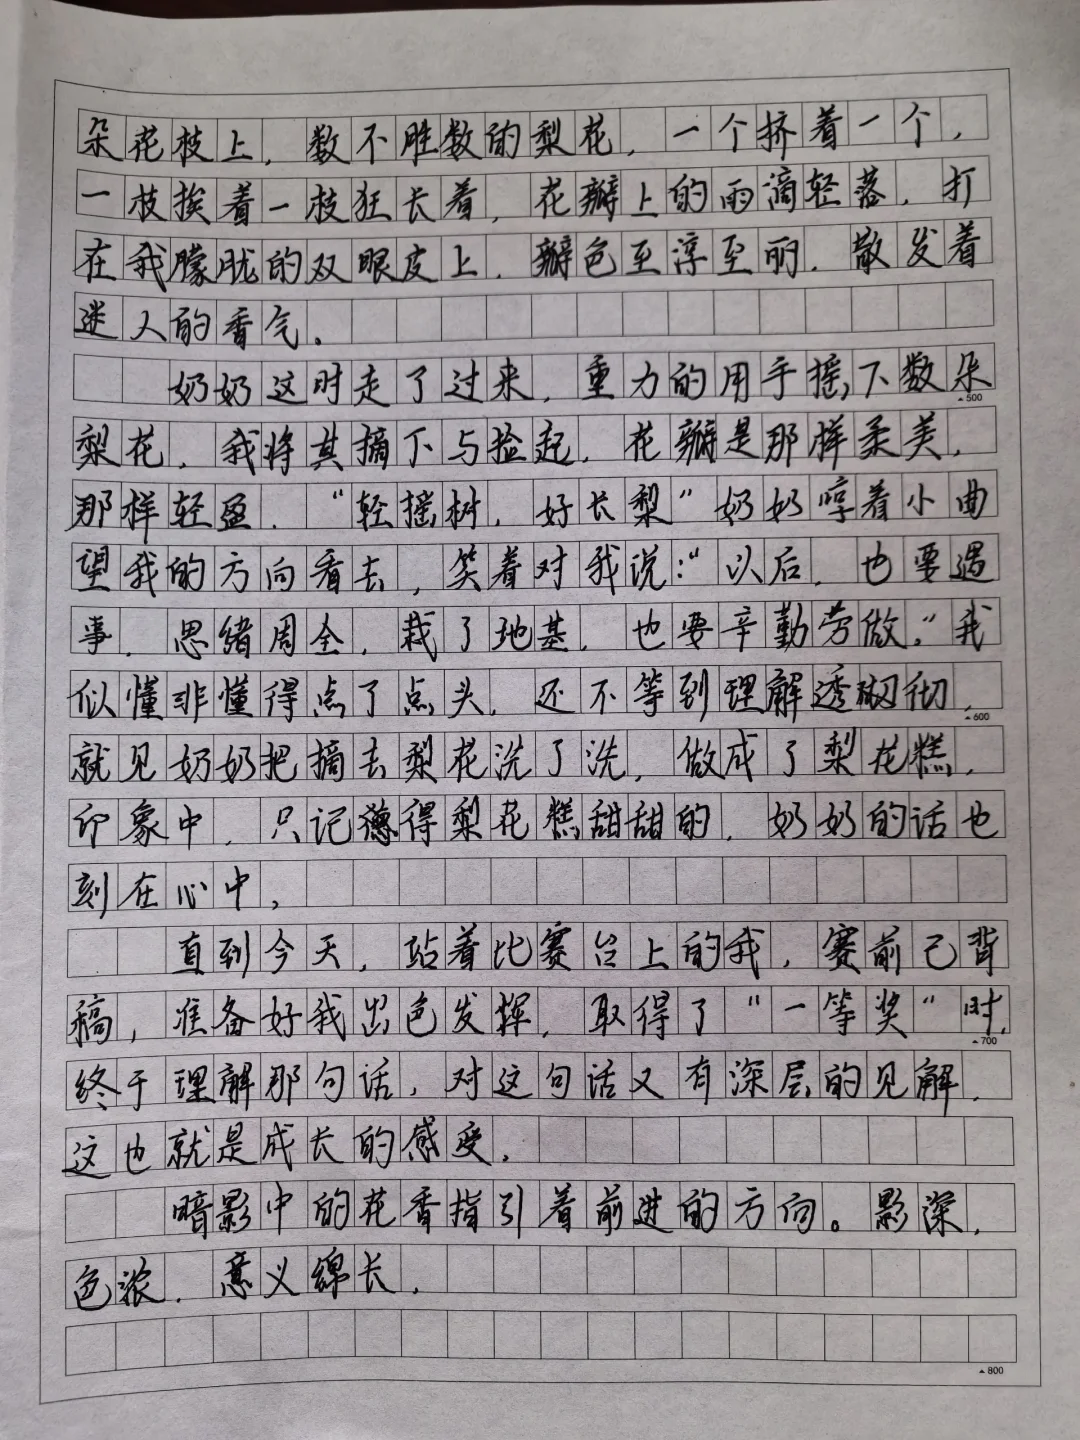 朵花枝上，数不胜数的梨花，一个挤着一个，
一枝挨着一枝狂长着，花瓣上的雨滴轻落，打
在我朦胧的双眼皮上，瓣色至淳至丽，散发着
迷人的香气。
奶奶这时走了过来，重力的用手摇下数朵
▲500
梨花，我将其摘下与捡起，花瓣是那样柔美，
那样轻盈，“轻摇树，好长梨”奶奶哼着小曲
望我的方向看去，笑着对我说：“以后，也要遇
事，思绪周全，栽了地基，也要辛勤劳做。”我
似懂非懂得点了点头，还不等到理解透彻，
▲600
就见奶奶把摘去梨花洗了洗，做成了梨花糕，
印象中，只记得梨花糕甜甜的，奶奶的话也
刻在心中，
直到今天，站着比赛台上的我，赛前已背
稿，准备好我出色发挥，取得了“一等奖”时，
▲700
终于理解那句话，对这句话又有深层的见解，
这也就是成长的感受，
暗影中的花香指引着前进的方向。影深，
色浓，意义绵长，
▲800